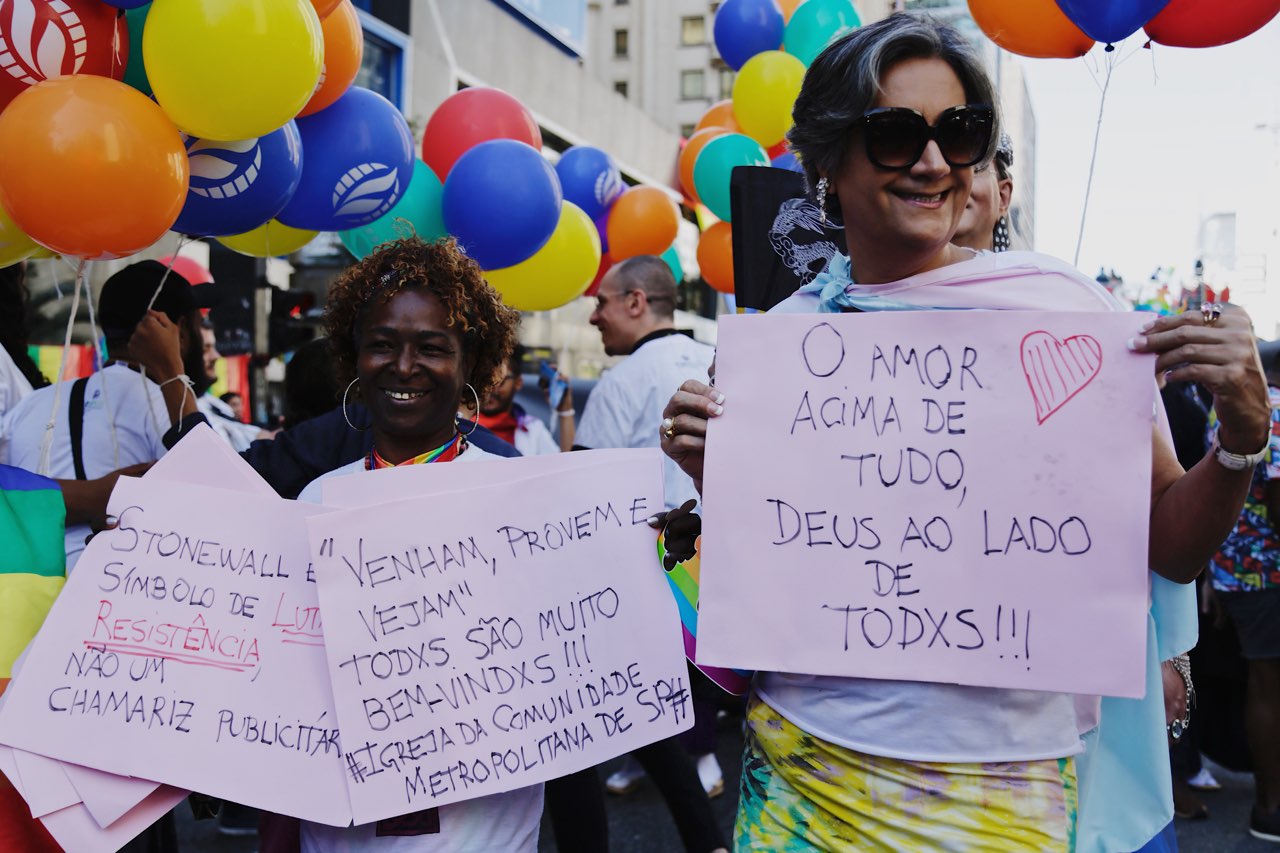 STONEWALL É
SÍMBOLO DE LUTA
RESISTÊNCIA,
NÃO UM
CHAMARIZ
"VENHAM, PROVEM E
VEJAM"
TODXS SÃO MUITO
BEM-VINDXS!!!
#IGREJA DA COMUNIDADE
METROPOLITANA DE SP#
O AMOR
ACIMA DE
TUDO,
DEUS AO LADO
DE
TODXS!!!